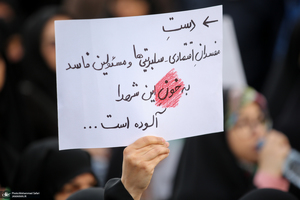 ← دستِ
مفسدانِ اقتصادی - سلبریتی‌ها و مسئولین فاسد
به خونِ این شهدا
آلوده است ...